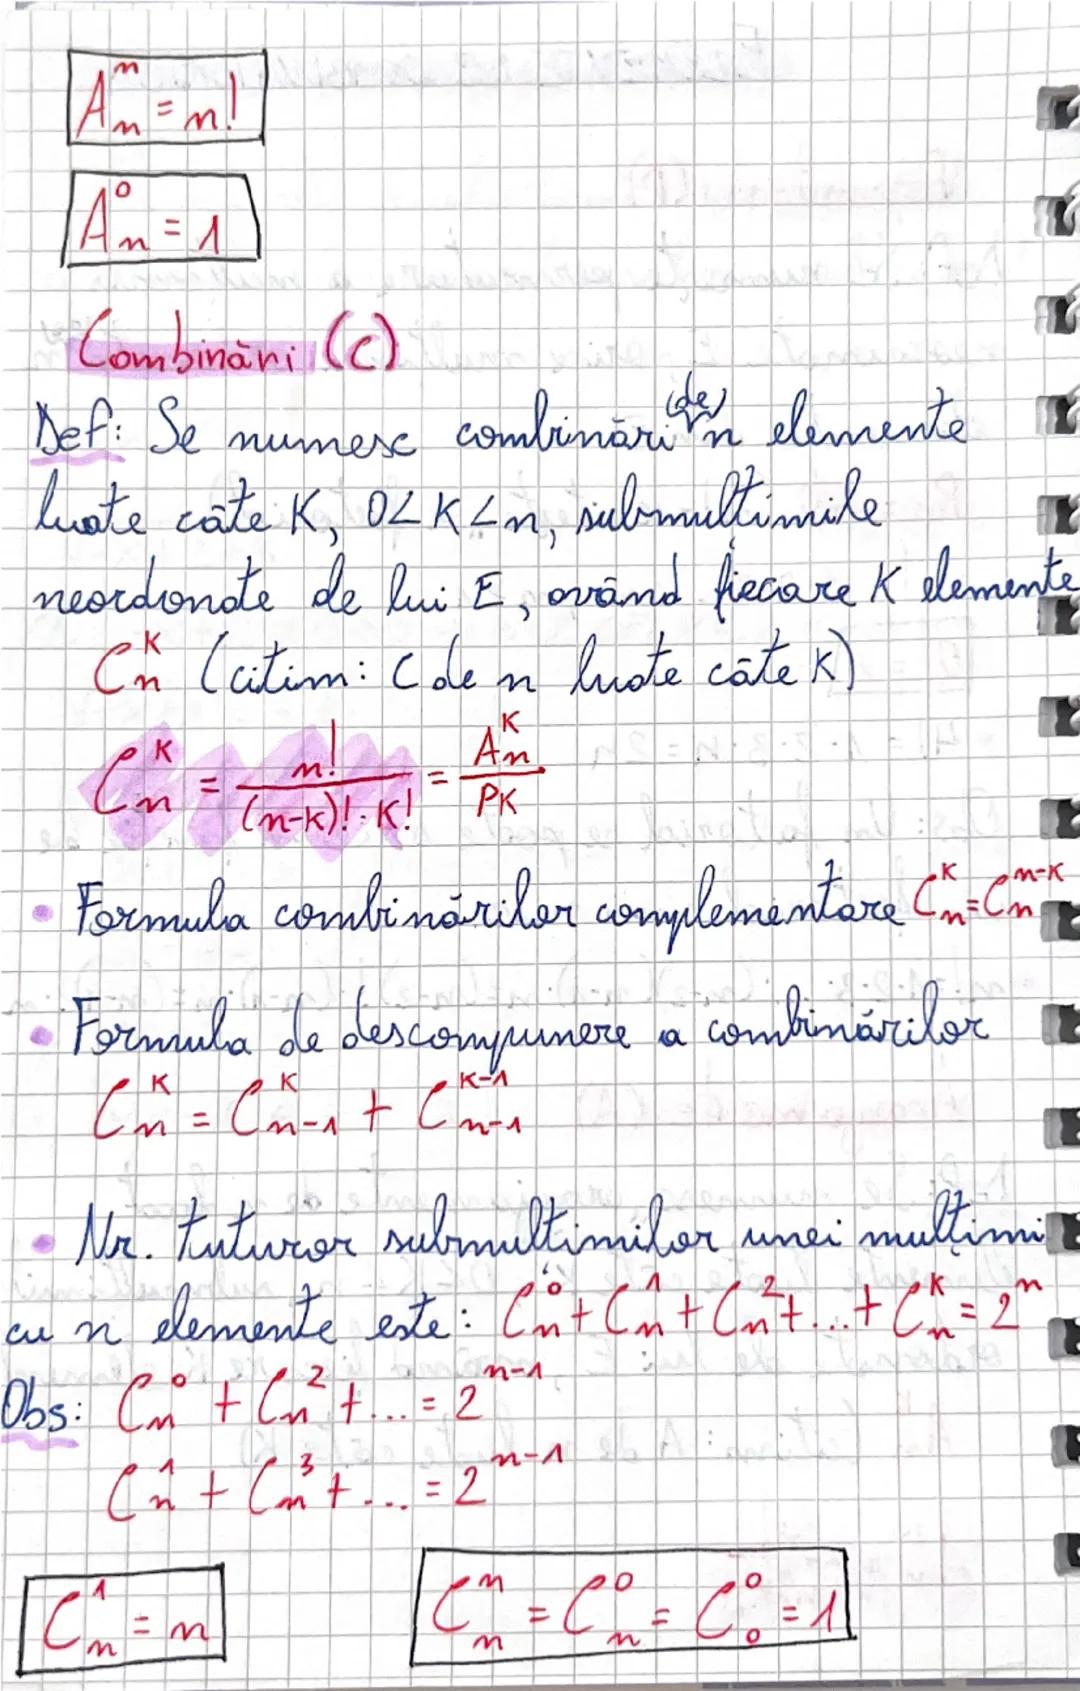 Aₙⁿ = n!
Aₙ⁰ = 1
Combinări (C)
Def: Se numesc combinări (de) n elemente
luate câte K, 0<K<n, submulțimile
neordonate de lui E, având fiecare K elemente
Cₙᴷ (citim: C de n luate câte K)
Cₙᴷ = n!/((n-k)!·K!) = Aₙᴷ/PK
• Formula combinărilor complementare Cₙᴷ=Cₙⁿ⁻ᴷ
• Formula de descompunere a combinărilor
Cₙᴷ = Cₙ₋₁ᴷ + Cₙ₋₁ᴷ⁻¹
• Nr. tuturor submulțimilor unei mulțimi
cu n elemente este: Cₙ⁰ + Cₙ¹ + Cₙ² + ... + Cₙᴷ = 2ⁿ
Obs: Cₙ⁰ + Cₙ² + ... = 2ⁿ⁻¹
Cₙ¹ + Cₙ³ + ... = 2ⁿ⁻¹
Cₙ¹ = n
Cₙⁿ = Cₙ⁰ = C₀⁰ = 1